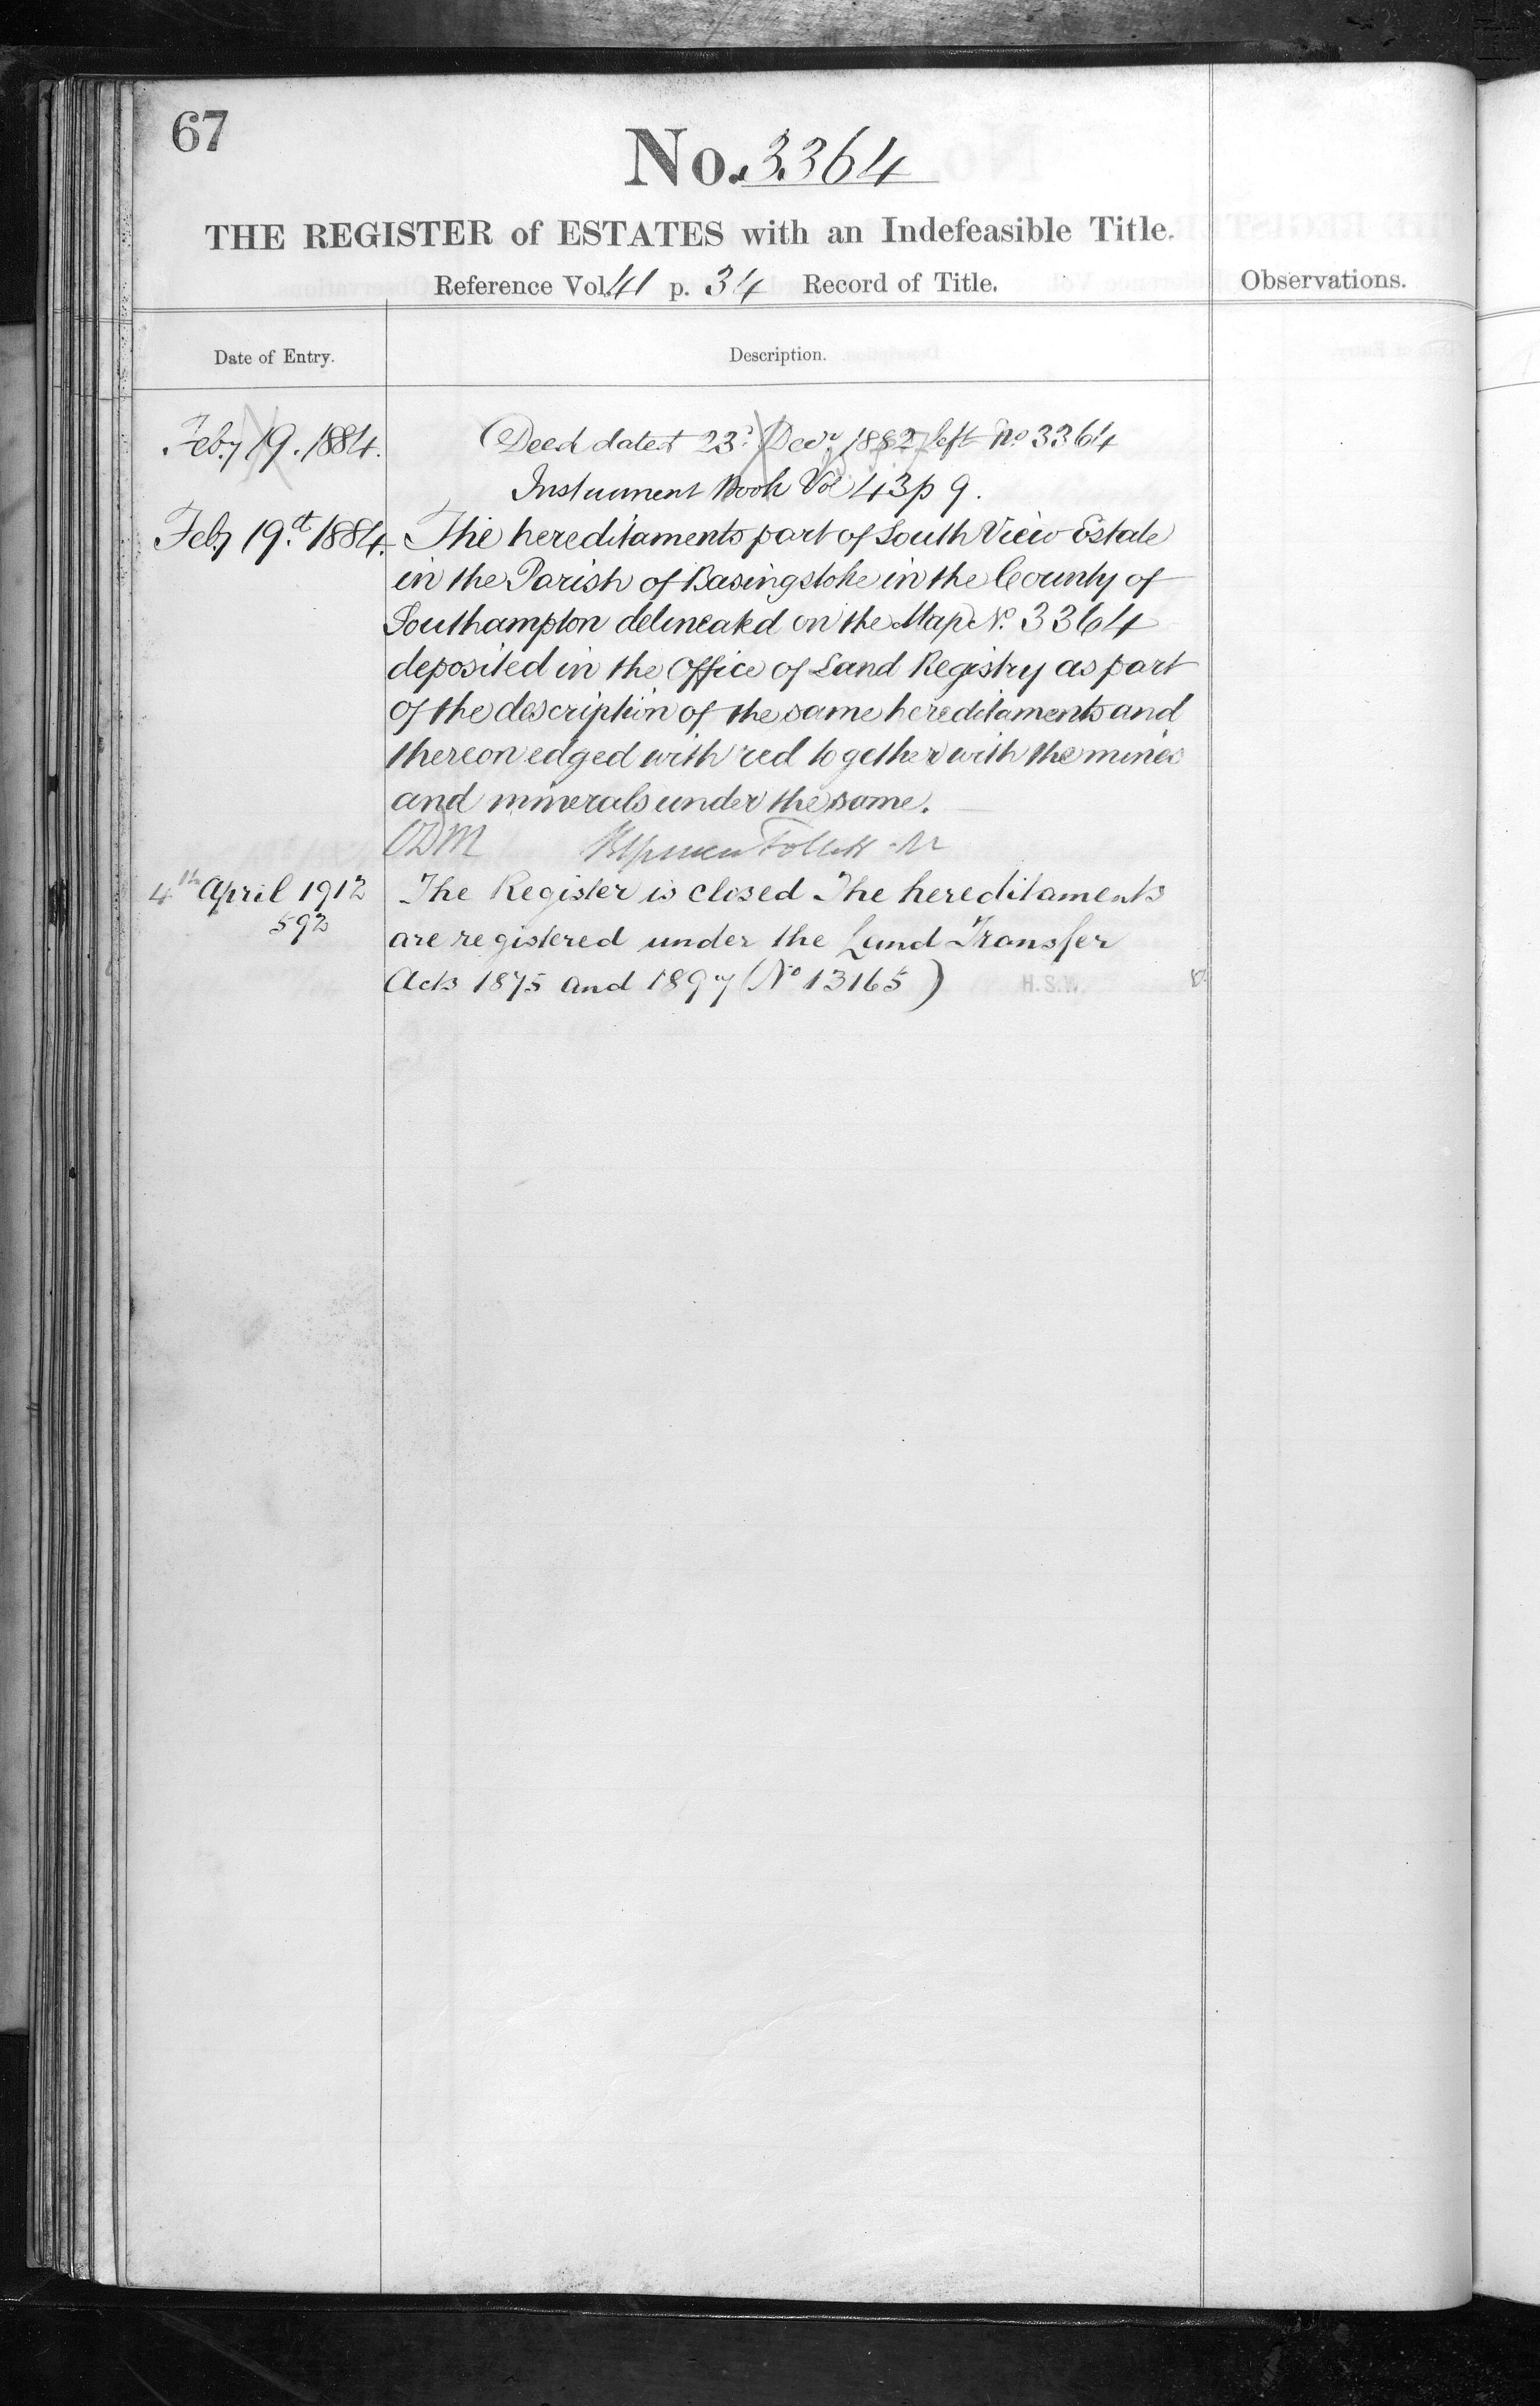 67
No. 3364
THE REGISTER of ESTATES with an Indefeasible Title.
Reference Vol. 41 p. 34 Record of Title.
Observations.
Date of Entry.
Description.
Feby 19. 1884.
Deed dated 23d Decr 1882 left No 3364
Instrument Book Vol 43 p 9.
Feby 19th 1884.
The hereditaments part of South View Estate
in the Parish of Basingstoke in the County of
Southampton delineated on the Map No. 3364
deposited in the Office of Land Registry as part
of the description of the same hereditaments and
thereon edged with red together with the mines
and minerals under the same.
Follett
4th April 1912
592
The Register is closed The hereditaments
are registered under the Land Transfer
Acts 1875 and 1897 (No 13165)
H.S.W.